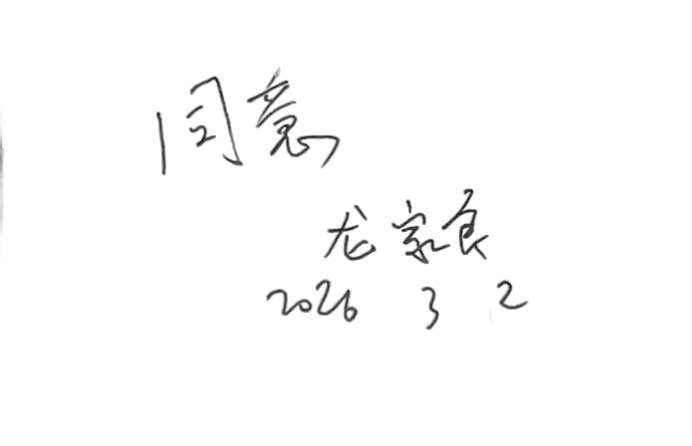 同意
龙家良
2026 3 2